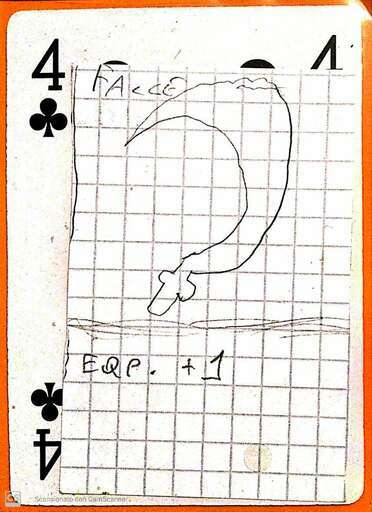 4
FALCE
EQP. +1
4
Scansionato con CamScanner
CS